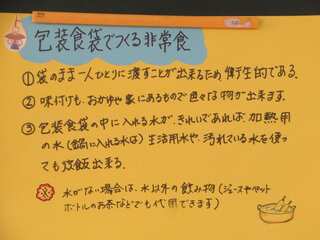 包装食袋でつくる非常食
①袋のまま一人ひとりに渡すことが出来るため、衛生的である。
②味付けも、おかゆや家にあるもので色々な物が出来ます。
③包装食袋の中に入れる水が、きれいであれば、加熱用
の水(鍋に入れる水は)生活用水や、汚れている水を使っ
ても炊飯出来る。
水がない場合は、水以外の飲み物(ジュースやペット
ボトルのお茶などでも代用できます)